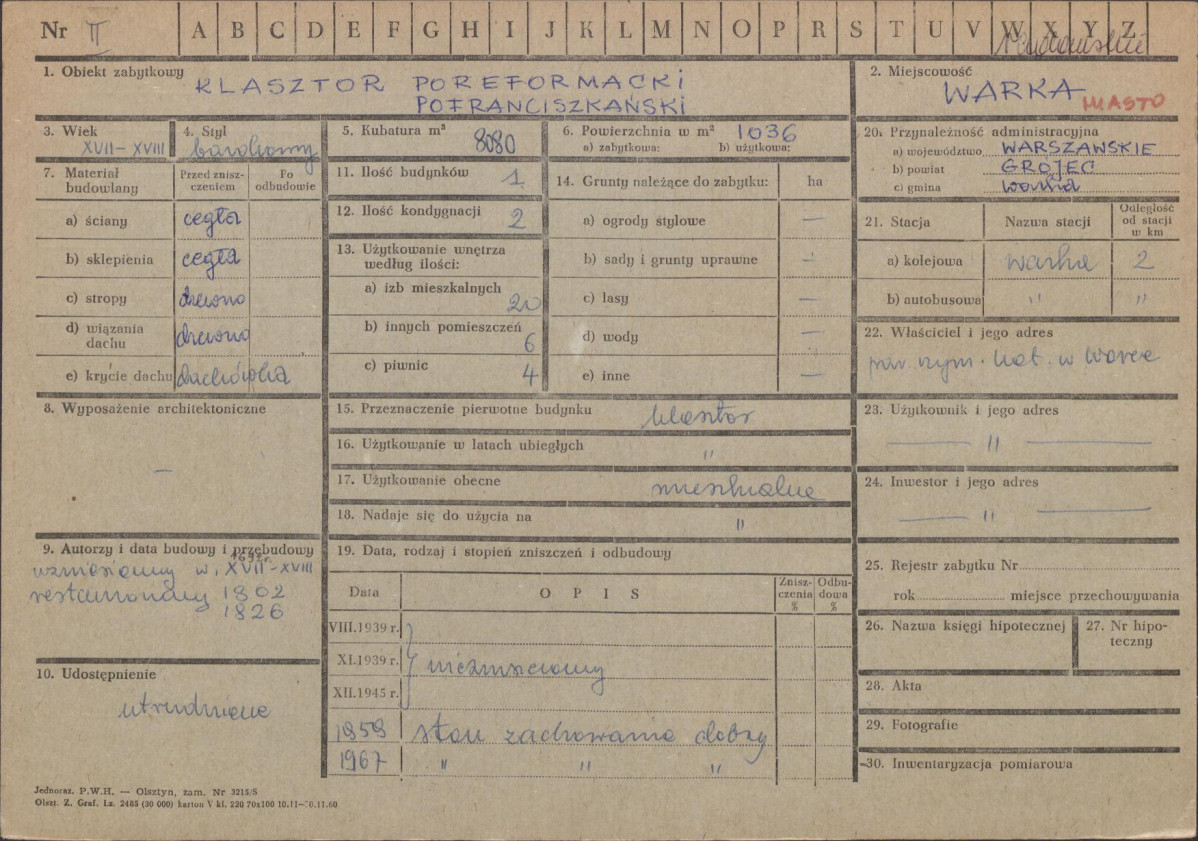 Nr II A B C D E F G H I J K L M N O P R S T U V W X Y Z
1. Obiekt zabytkowy KLASZTOR POREFORMACKI
POFRANCISZKAŃSKI
2. Miejscowość
WARKA MIASTO
3. Wiek
XVII – XVIII
4. Styl
barokowy
5. Kubatura m³ 8080
6. Powierzchnia w m² 1036
a) zabytkowa: b) użytkowa:
20. Przynależność administracyjna
a) województwo WARSZAWSKIE
b) powiat GRÓJEC
c) gmina Warka
7. Materiał budowlany
Przed zniszczeniem
Po odbudowie
a) ściany cegła
b) sklepienia cegła
c) stropy drewno
d) wiązania dachu drewno
e) krycie dachu dachówka
11. Ilość budynków 1
12. Ilość kondygnacji 2
13. Użytkowanie wnętrza
według ilości:
a) izb mieszkalnych 20
b) innych pomieszczeń 6
c) piwnic 4
14. Grunty należące do zabytku: ha
a) ogrody stylowe —
b) sady i grunty uprawne —
c) lasy —
d) wody —
e) inne —
21. Stacja Nazwa stacji Odległość
od stacji
w km
a) kolejowa Warka 2
b) autobusowa " "
22. Właściciel i jego adres
par. rzym. kat. w Warce
8. Wyposażenie architektoniczne
—
15. Przeznaczenie pierwotne budynku klasztor
16. Użytkowanie w latach ubiegłych "
17. Użytkowanie obecne mieszkalne
18. Nadaje się do użycia na "
23. Użytkownik i jego adres
— " —
24. Inwestor i jego adres
— " —
9. Autorzy i data budowy i przebudowy
wzniesiony w. XVII–XVIII
restaurowany 1802
1826
19. Data, rodzaj i stopień zniszczeń i odbudowy
Data OPIS Zniszczenia % Odbudowa %
VIII.1939 r.
XI.1939 r. niezniszczony
XII.1945 r.
1959 stan zachowania dobry
1967 " " "
25. Rejestr zabytku Nr
rok miejsce przechowywania
26. Nazwa księgi hipotecznej
27. Nr hipoteczny
10. Udostępnienie
utrudnione
28. Akta
29. Fotografie
30. Inwentaryzacja pomiarowa
Jednoraz. P.W.H. — Olsztyn, zam. Nr 3215/S
Olszt. Z. Graf. Lz. 2485 (30 000) karton V kl. 220 70x100 10.11—30.11.60